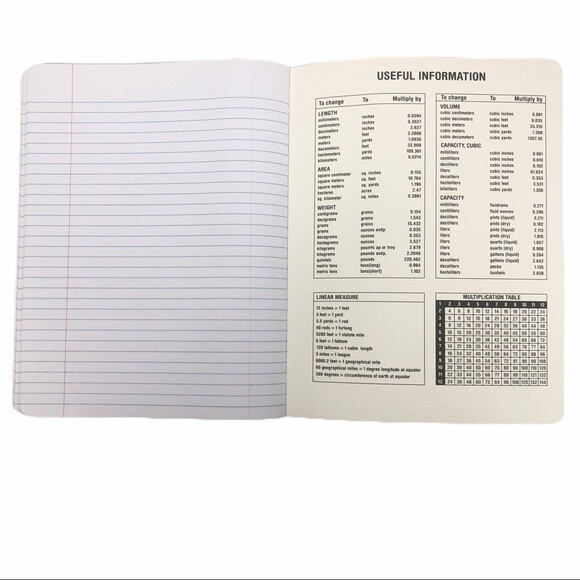 USEFUL INFORMATION
To change To Multiply by
LENGTH
millimeters inches 0.0394
centimeters inches 0.3937
decameters inches 3.937
meters feet 3.2808
meters yards 1.0936
decameters feet 32.808
hectometers yards 109.361
kilometers miles 0.6214
AREA
square centimeter sq. inches 0.155
square meters sq. feet 10.764
square meters sq. yards 1.196
hectares acres 2.47
sq. kilometer sq. miles 0.3861
WEIGHT
centigrams grains 0.154
decigrams grains 1.543
grams grains 15.432
grams ounces avdp. 0.035
decagrams ounces 0.353
hectograms ounces 3.527
kilograms pounds ap or troy 2.679
kilograms pounds avdp. 2.2046
quintals pounds 220.462
metric tons tons(long) 0.984
metric tons tons(short) 1.102
To change To Multiply by
VOLUME
cubic centimeters cubic inches 0.061
cubic decameters cubic feet 0.035
cubic meters cubic feet 35.315
cubic meters cubic yards 1.308
cubic decameters cubic yards 1307.95
CAPACITY, CUBIC
milliliters cubic inches 0.061
centiliters cubic inches 0.610
deciliters cubic inches 6.102
liters cubic inches 61.024
decaliters cubic feet 0.353
hectoliters cubic feet 3.531
kiloliters cubic yards 1.308
CAPACITY
milliliters fluidrams 0.271
centiliters fluid ounces 0.296
deciliters pints (liquid) 0.211
deciliters pints (dry) 0.182
liters pints (liquid) 2.113
liters pints (dry) 1.816
liters quarts (liquid) 1.057
liters quarts (dry) 0.908
liters gallons (liquid) 0.264
decaliters gallons (liquid) 2.642
decaliters pecks 1.135
hectoliters bushels 2.838
LINEAR MEASURE
12 inches = 1 feet
3 feet = 1 yard
5.5 yards = 1 rod
40 rods = 1 furlong
5280 feet = 1 statute mile
6 feet = 1 fathom
120 fathoms = 1 cable length
3 miles = 1 league
6085.2 feet = 1 geographical mile
60 geographical miles = 1 degree longitude at equator
360 degrees = circumference of earth at equator
MULTIPLICATION TABLE
1 2 3 4 5 6 7 8 9 10 11 12
2 4 6 8 10 12 14 16 18 20 22 24
3 6 9 12 15 18 21 24 27 30 33 36
4 8 12 16 20 24 28 32 36 40 44 48
5 10 15 20 25 30 35 40 45 50 55 60
6 12 18 24 30 36 42 48 54 60 66 72
7 14 21 28 35 42 49 56 63 70 77 84
8 16 24 32 40 48 56 64 72 80 88 96
9 18 27 36 45 54 63 72 81 90 99 108
10 20 30 40 50 60 70 80 90 100 110 120
11 22 33 44 55 66 77 88 99 110 121 132
12 24 36 48 60 72 84 96 108 120 132 144